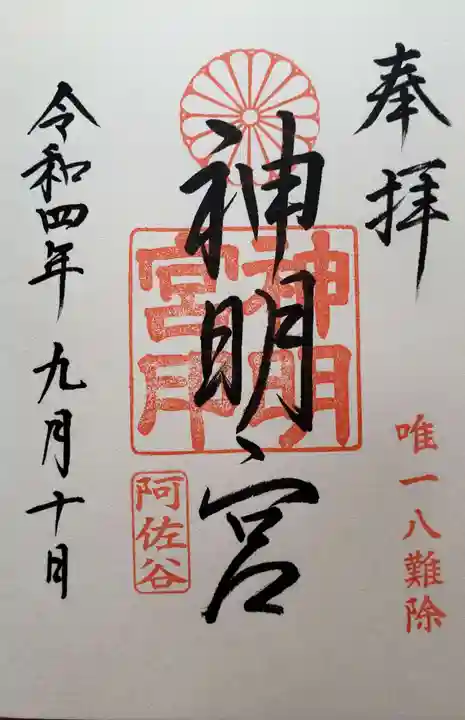 奉拝
唯一八難除
神明宮
神明宮印
阿佐谷
令和四年九月十日